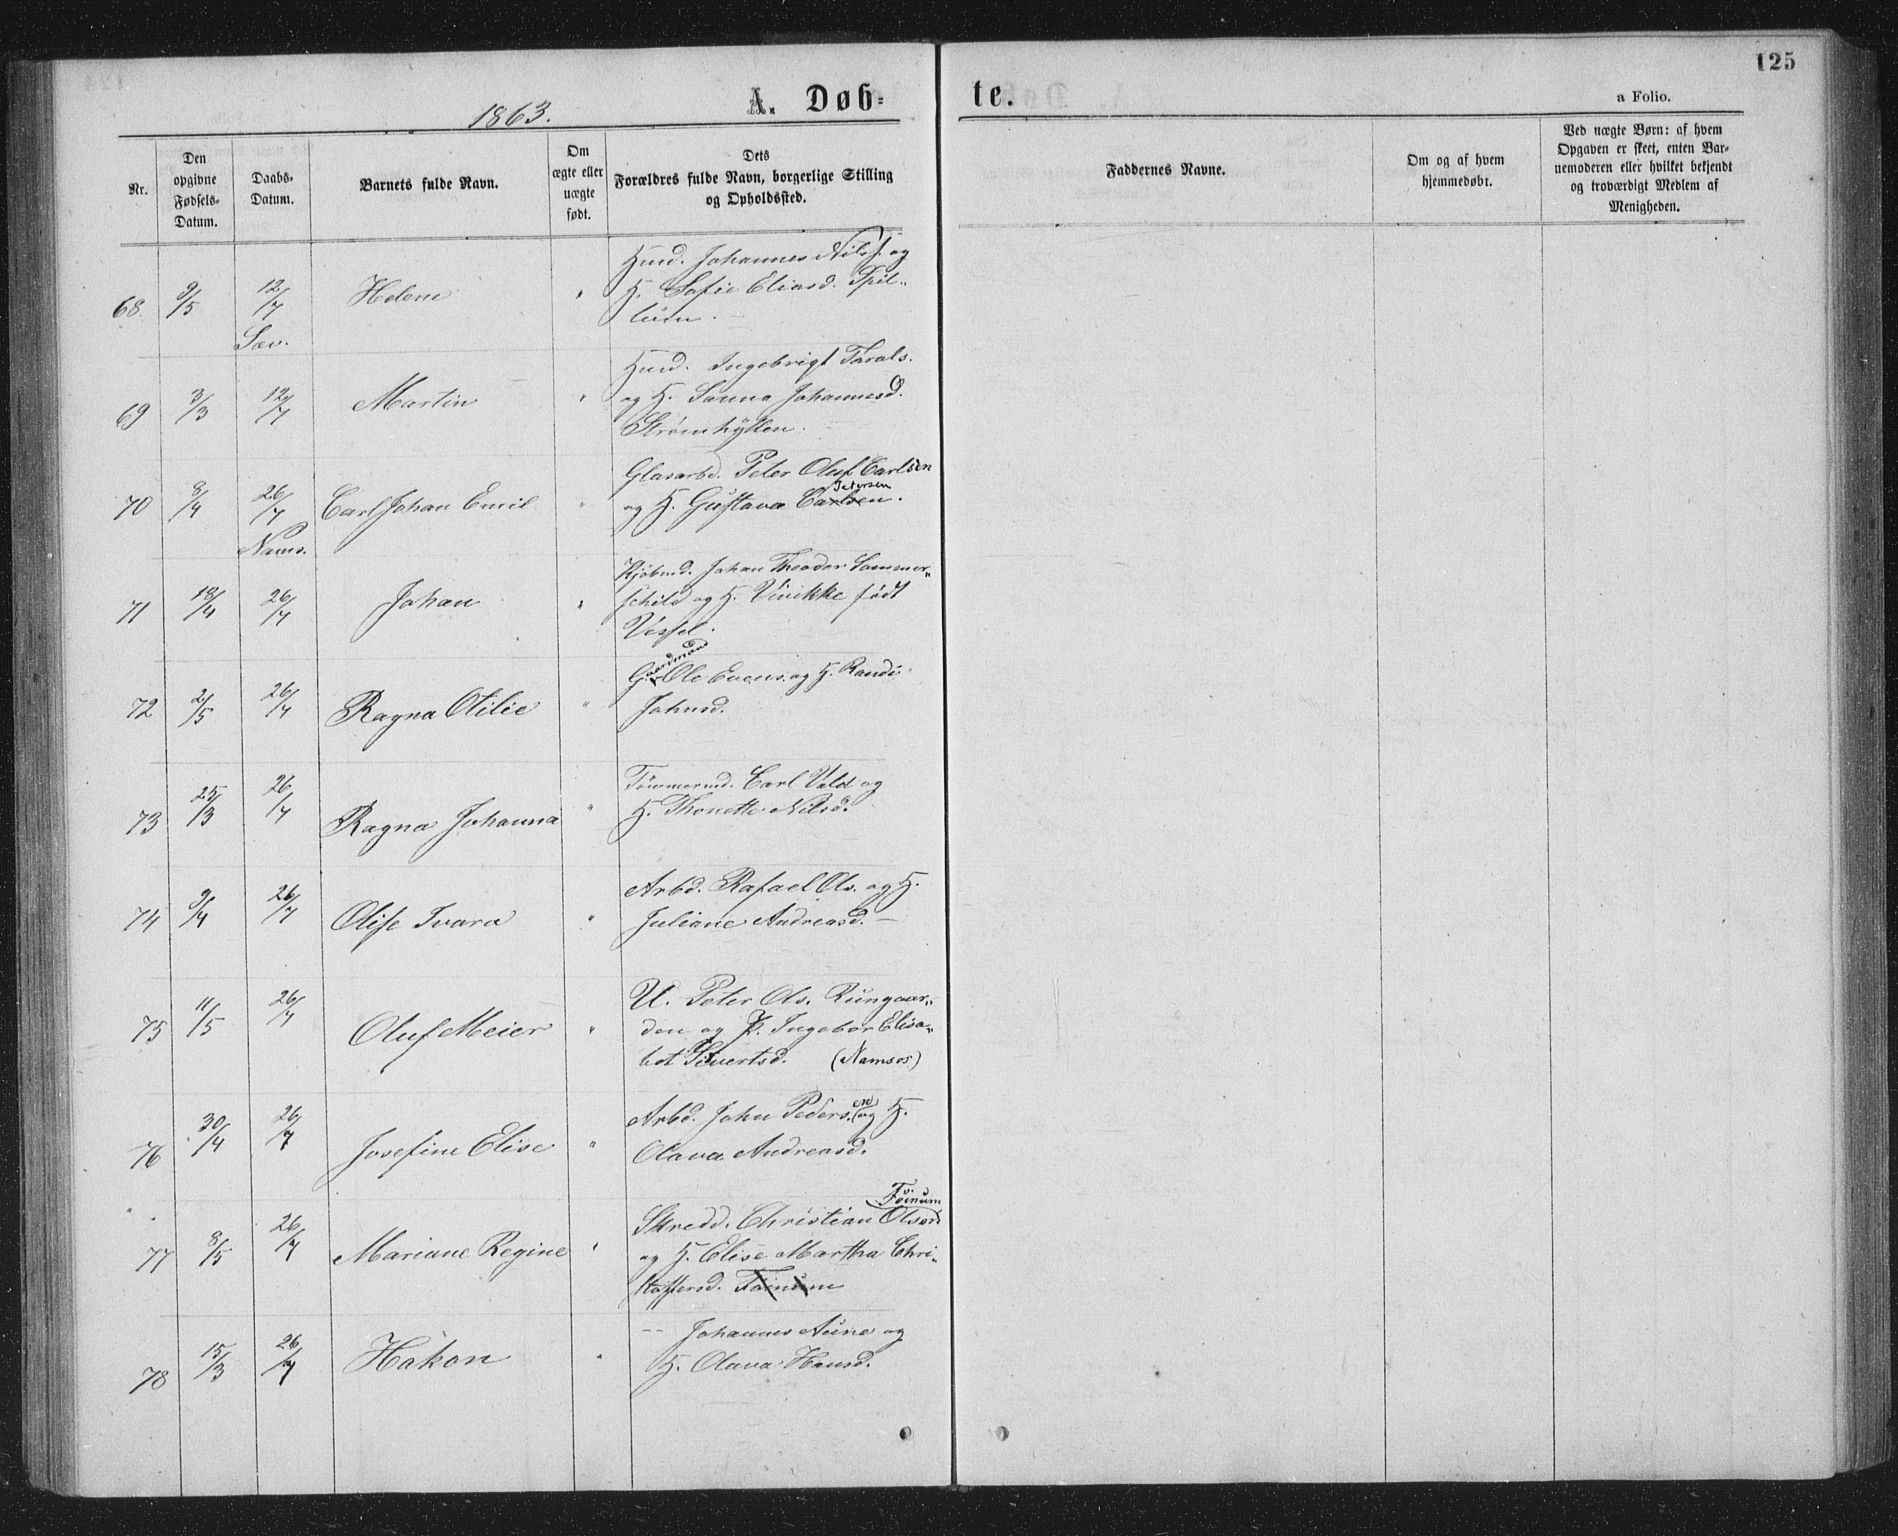 125
1863.
A. Døb-
te.
a Folio.
Nr.
Den
opgivne
Fødsels-
Datum.
Daabs-
Datum.
Barnets fulde Navn.
Om
ægte eller
uægte
født.
Dets
Forældres fulde Navn, borgerlige Stilling
og Opholdssted.
Faddernes Navne.
Om og af hvem
hjemmedøbt.
Ved uægte Børn: af hvem
Opgaven er skeet, enten Bar-
nemoderen eller hvilket bekjendt
og troværdigt Medlem af
Menigheden.
68 9/5 12/7 Helene " Husd. Johannes Nilsf. og
H. Sofie Eliasd. Spil-
lum.
Sæv.
69 3/3 12/7 Martin " Husd. Ingebrigt Tarals.
og H. Sanna Johannesd.
Strømhyllen.
70 8/4 26/7 Carl Johan Emil " Glasarbd. Peter Oluf Carlsen
og H. Gustava Carlsen. Petersen
Nams.
71 18/4 26/7 Johan " Kjøbmd. Johan Theodor Sommer-
schild og H. Vivikke født
Vessel.
72 2/5 26/7 Ragna Otilie " Gaardmand Ole Evens. og H. Randi
Johnsd.
73 25/3 26/7 Ragna Johanna " Tømmermd. Carl Vold og
H. Thonette Nilsd.
74 9/4 26/7 Olise Ivara " Arbd. Rafael Ols. og H.
Juliane Andreasd. —
75 11/5 26/7 Oluf Meier " U. Peter Ols. Rungaar-
den og P. Ingebor Elisa-
bet Sivertsd. (Namsos)
76 30/4 26/7 Josefine Elise " Arbd. John Pedersen og H.
Olava Andreasd.
77 8/5 26/7 Mariane Regine " Skredd. Christian Olsen Føinum
og H. Elise Martha Chri-
stoffersd. Føinum
78 15/3 26/7 Håkon " — Johannes Aune og
H. Olava Hansd.